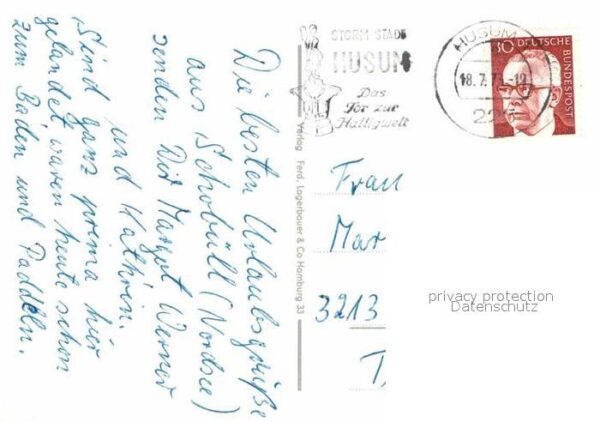 Die besten Urlaubsgrüße
aus Schobüll (Nordsee)
senden Dir Margot Werner
und Kathrin.
Sind ganz prima hier
gelandet waren heute schon
zum Baden und Paddeln.
Verlag Ferd. Lagerbauer & Co Hamburg 33
STORM-STADT
HUSUM
Das
Tor zur
Halligwelt
HUSUM
18.7.73-19
225
30 DEUTSCHE
BUNDESPOST
Frau
Mar
3213
privacy protection
Datenschutz